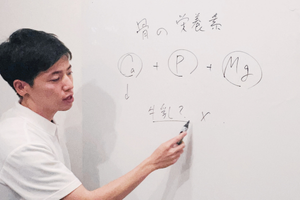 骨の栄養素
Ca + P + Mg
↓
牛乳? ×